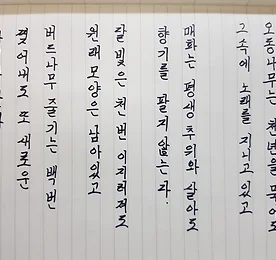 오동나무는 천년을 묵어도
그 속에 노래를 지니고 있고
매화는 평생 추위와 살아도
향기를 팔지 않는다.
달빛은 천 번 이지러져도
원래 모양은 남아있고
버드나무 줄기는 백번
찢어내도 또 새로운